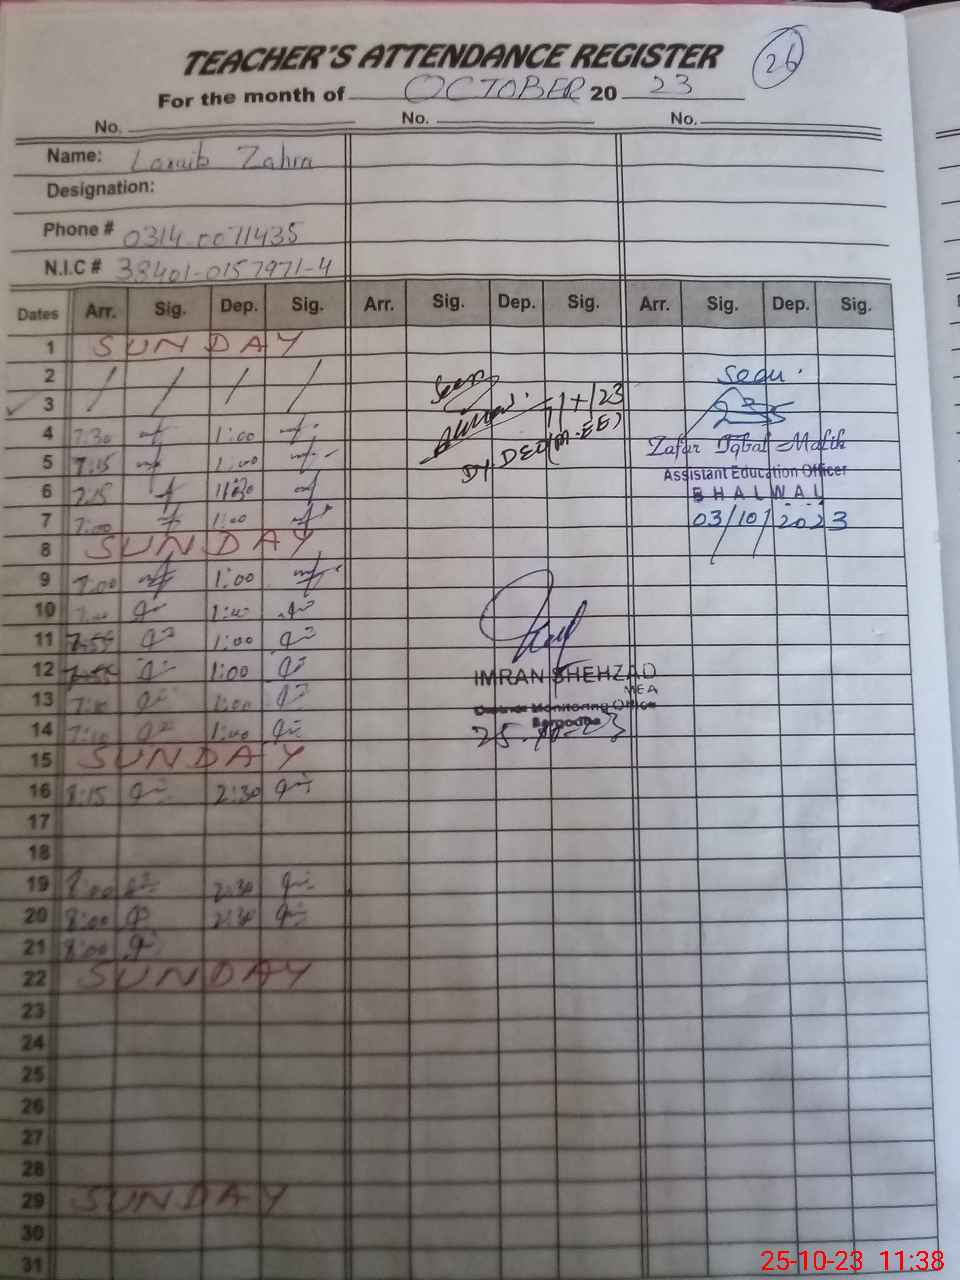 26
TEACHER'S ATTENDANCE REGISTER
For the month of OCTOBER 20 23
No. No. No.
Name: Zahra
Designation:
Phone # 0314 0071435
N.I.C # 38401-0157971-4
Dates Arr. Sig. Dep. Sig. Arr. Sig. Dep. Sig. Arr. Sig. Dep. Sig.
1 SUNDAY
2 / / / /
3
4 7:30 1:00
5 7:15 1:00
6 7:15
7 7:00 1:00
8 SUNDAY
9 7:00 1:00
10 7:00 1:00
11 1:00
12 1:00
13 7:10 1:00
14 7:10 1:00
15 SUNDAY
16 8:15 2:30
17
18
19 8:00 2:30
20 8:00 2:30
21 8:00
22 SUNDAY
23
24
25
26
27
28
29 SUNDAY
30
31
Seen
Dy. DEO (M-EE)
Seen.
Zafar Iqbal Malik
Assistant Education Officer
BHALWAL
03/10/2023
IMRAN SHEHZAD
MEA
District Monitoring Officer
Sargodha
25-10-23 11:38